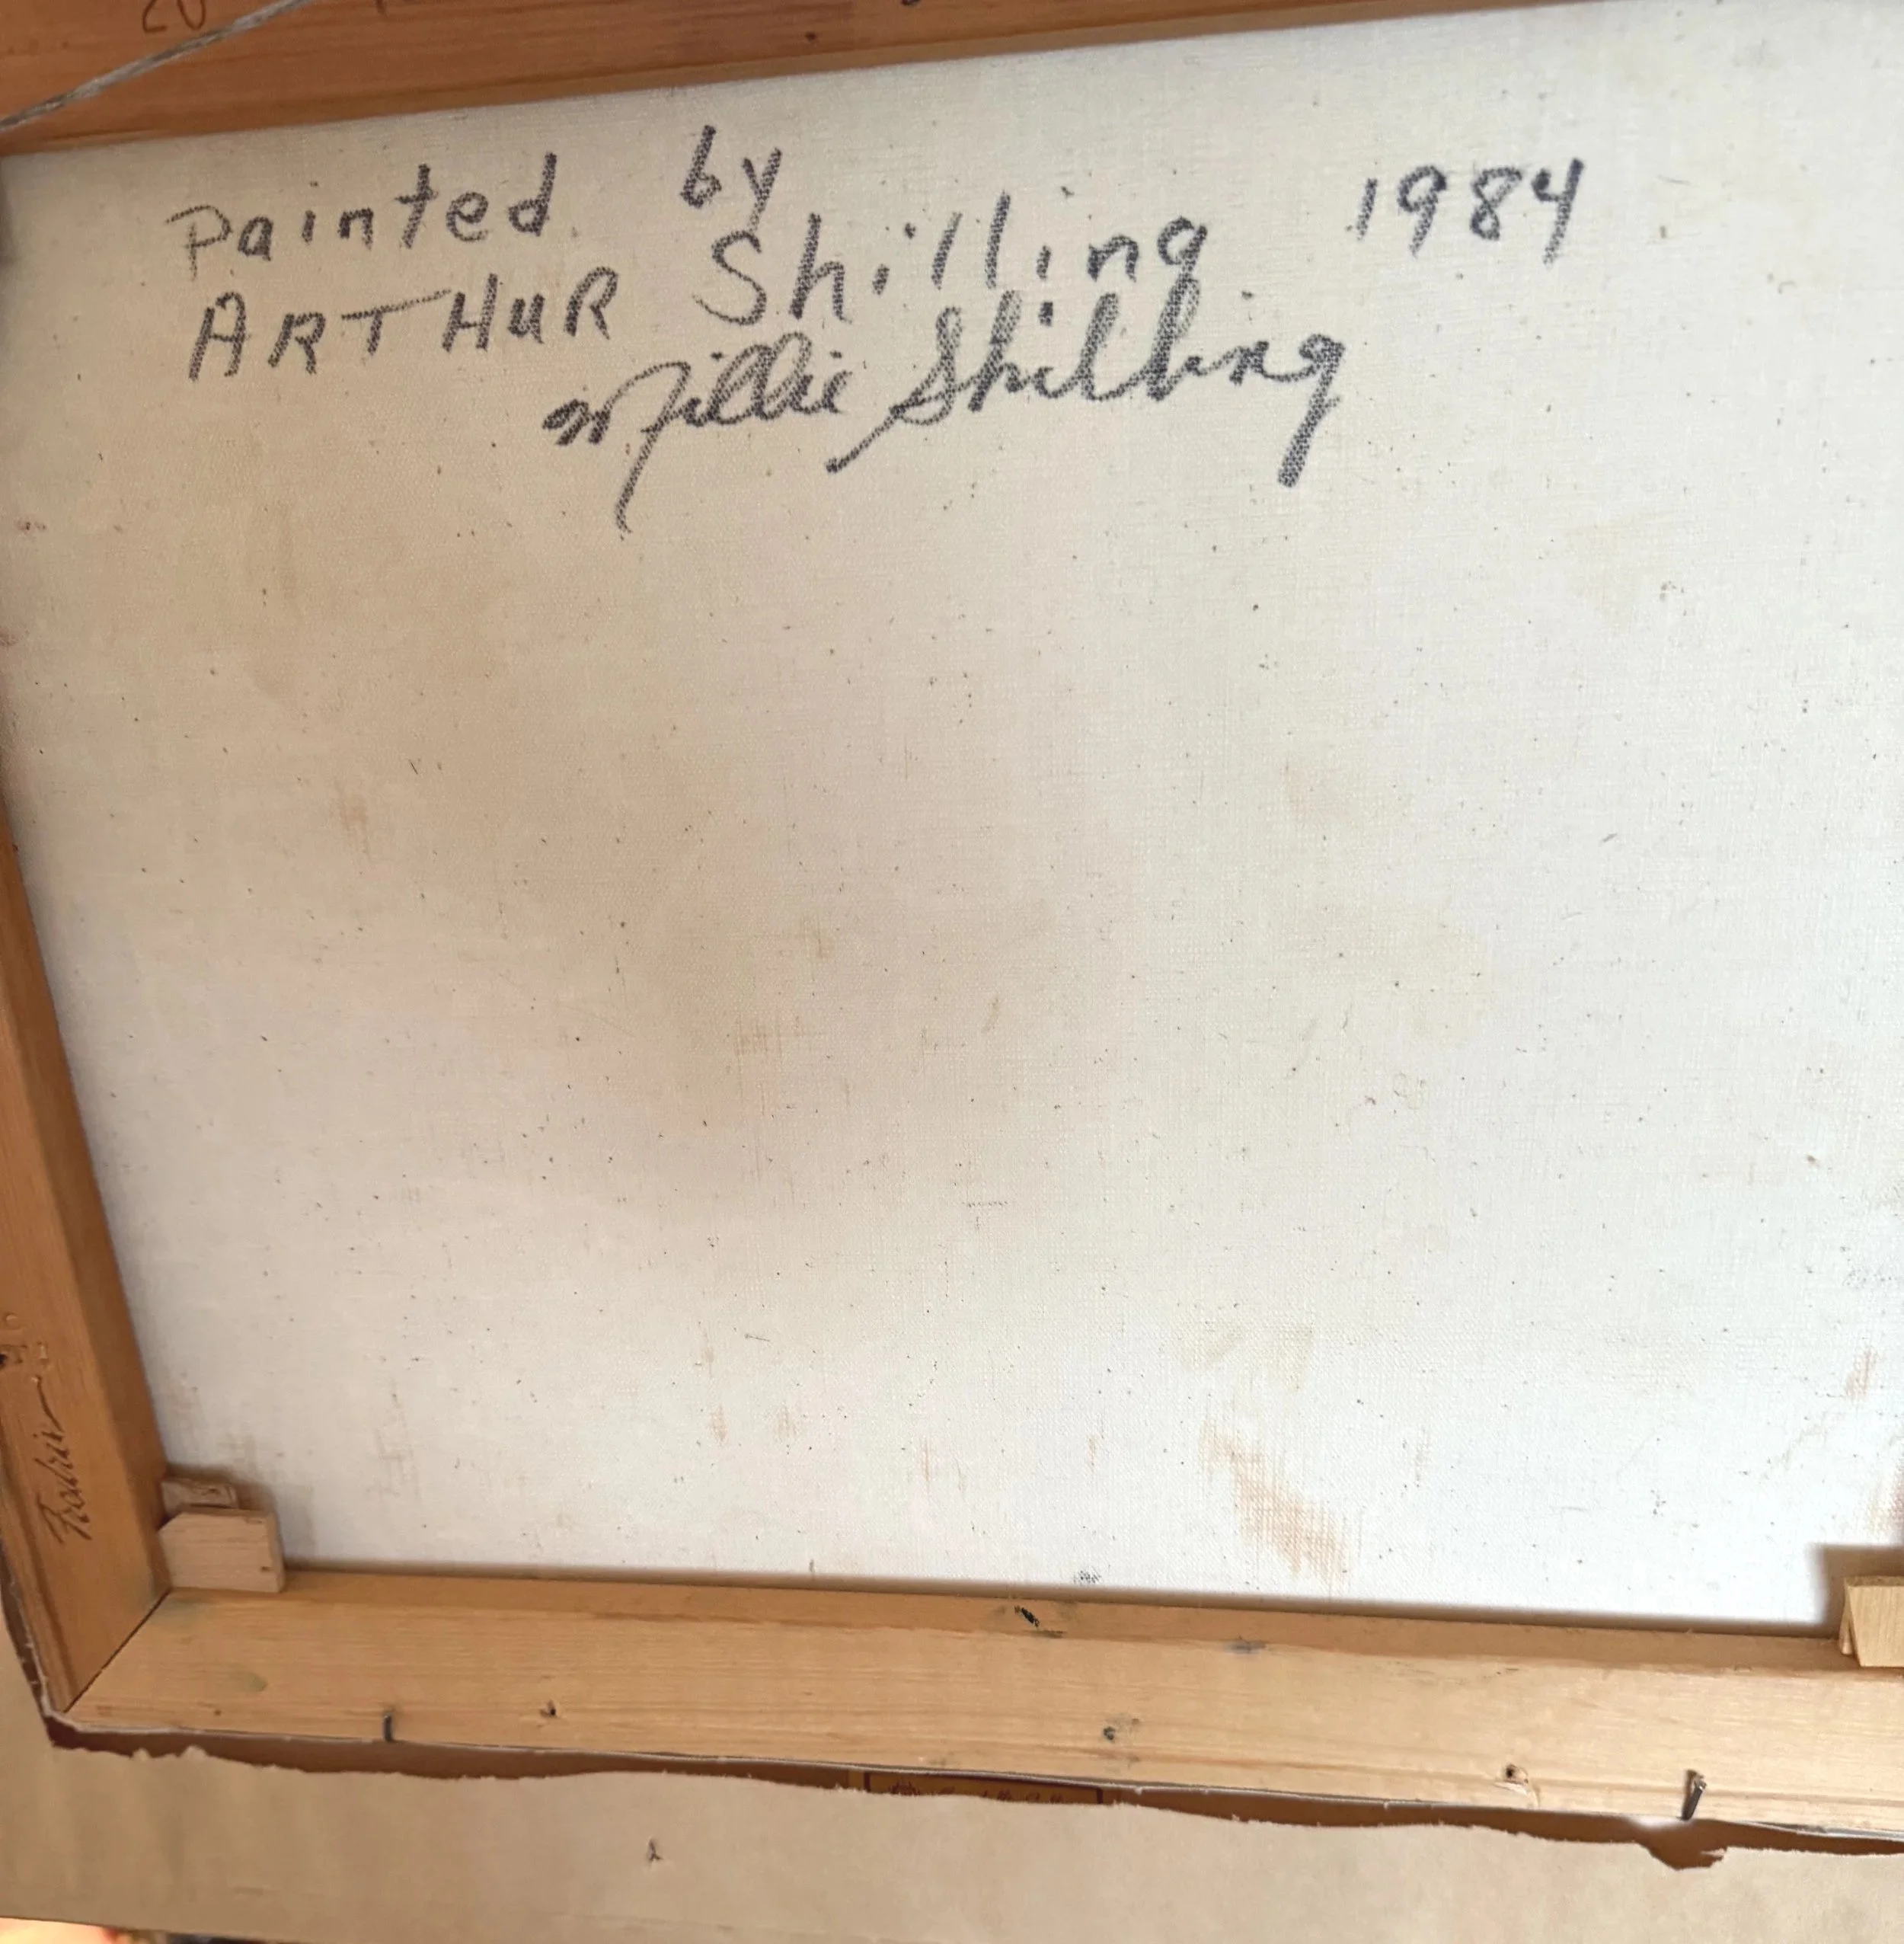 Painted by 1984
ARTHUR Shilling
Millie Shilling
Fredrix